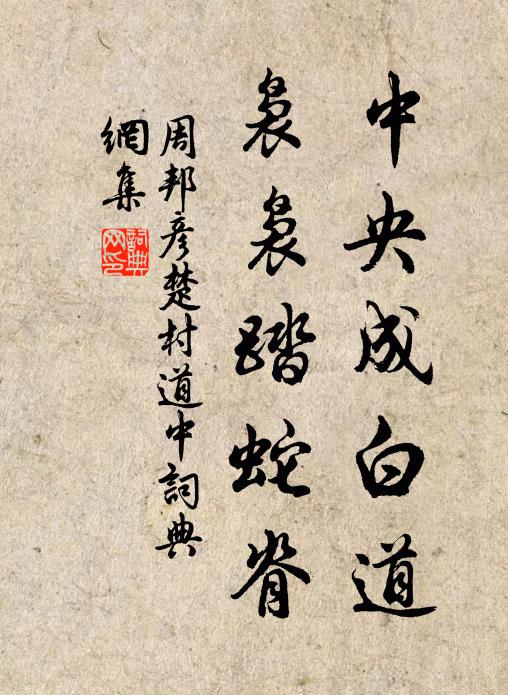 中央成白道
裊裊踏蛇脊
周邦彥楚村道中詞典
網集
詞典
网印